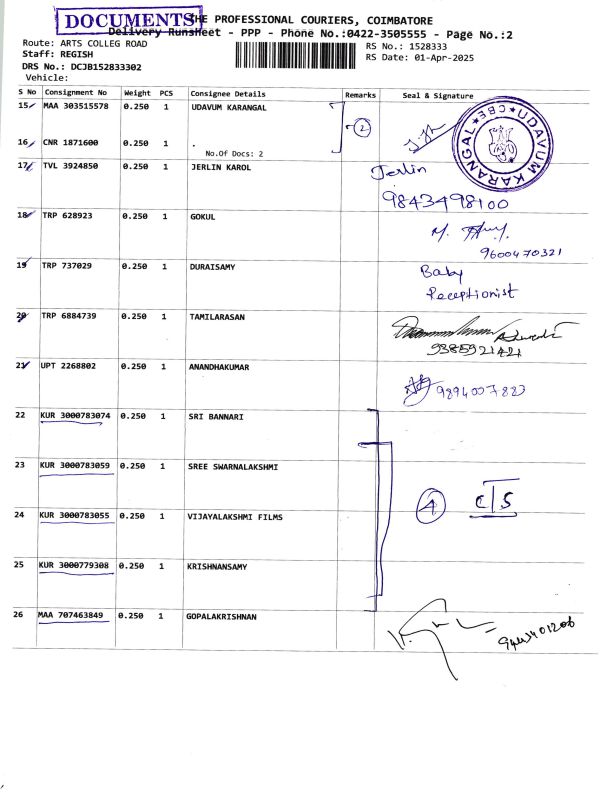 DOCUMENTS
THE PROFESSIONAL COURIERS, COIMBATORE
Delivery Runsheet - PPP - Phone No.:0422-3505555 - Page No.:2
Route: ARTS COLLEG ROAD
Staff: REGISH
DRS No.: DCJB152833302
Vehicle:
RS No.: 1528333
RS Date: 01-Apr-2025
S No Consignment No Weight PCS Consignee Details Remarks Seal & Signature
15 MAA 303515578 0.250 1 UDAVUM KARANGAL
2
16 CNR 1871600 0.250 1 .
No.Of Docs: 2
UDAVUM KARANGAL ★ CBE ★
17 TVL 3924850 0.250 1 JERLIN KAROL Jerlin
9843498100
18 TRP 628923 0.250 1 GOKUL
9600470321
19 TRP 737029 0.250 1 DURAISAMY Baby
Receptionist
20 TRP 6884739 0.250 1 TAMILARASAN
9385921421
21 UPT 2268802 0.250 1 ANANDHAKUMAR
9894007823
22 KUR 3000783074 0.250 1 SRI BANNARI
23 KUR 3000783059 0.250 1 SREE SWARNALAKSHMI
24 KUR 3000783055 0.250 1 VIJAYALAKSHMI FILMS 4 C/S
25 KUR 3000779308 0.250 1 KRISHNANSAMY
26 MAA 707463849 0.250 1 GOPALAKRISHNAN